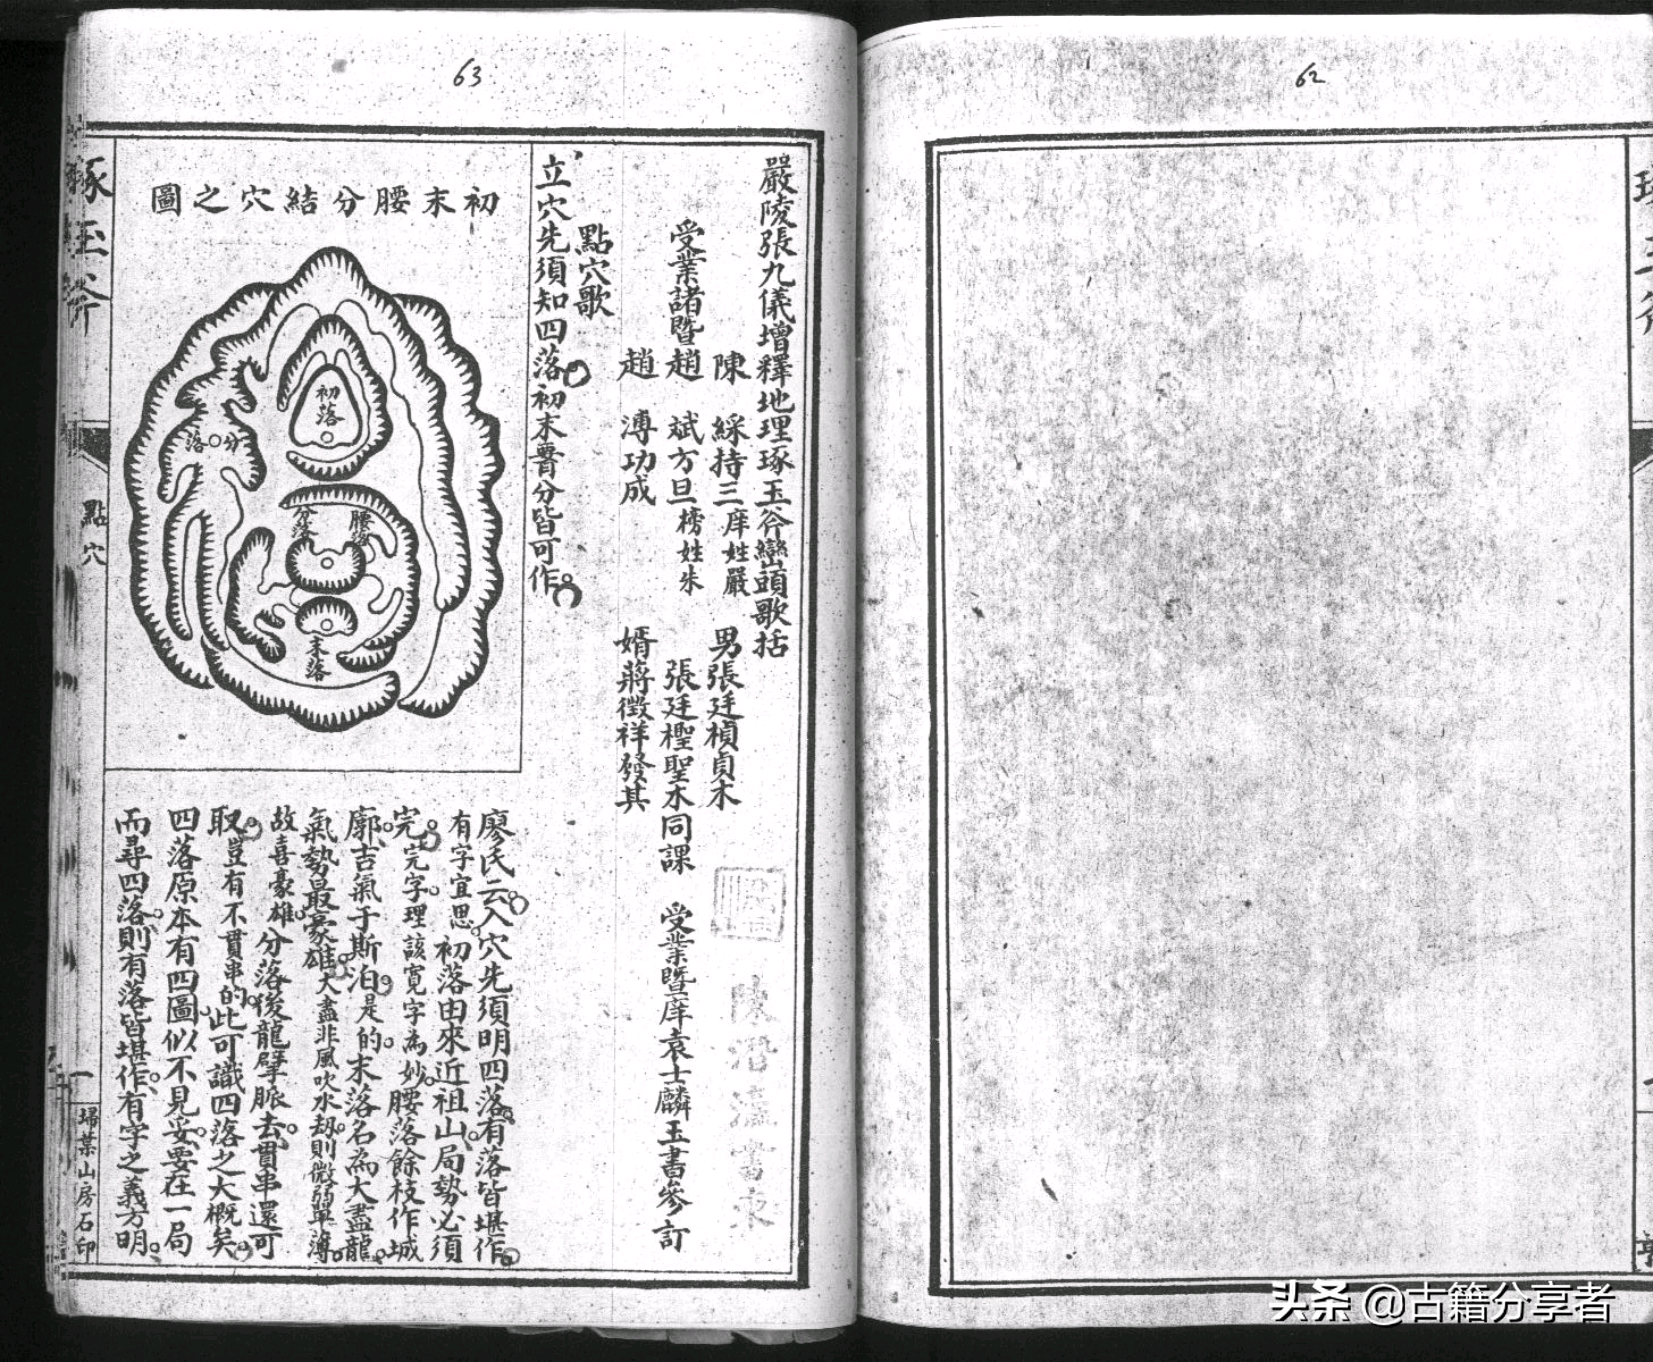 62
63
嚴陵張九儀增釋地理琢玉斧巒頭歌括
陳 綵持三庠姓嚴 男張廷楨貞木
受業諸暨趙 斌方旦榜姓朱 張廷檉聖木同課 受業暨庠袁士麟玉書參訂
趙 溥功成 婿蔣徵祥發其
點穴歌
立穴先須知四落初末𦝫分皆可作
初末腰分結穴之圖
初落
分落
腰落
分落
末落
廖氏云入穴先須明四落有落皆堪作
有字宜思初落由來近祖山局勢必須
完完字理該寬字為妙腰落餘枝作城
廓吉氣于斯泊是的末落名為大盡龍
氣勢最豪雄大盡非風吹水刼則微弱單薄
故喜豪雄分落後龍擘脈去貫串還可
取豈有不貫串的此可識四落之大概矣
四落原本有四圖似不見妥要在一局
而尋四落則有落皆堪作有字之義方明
琢玉斧
點穴
一
埽葉山房石印
头条 @古籍分享者